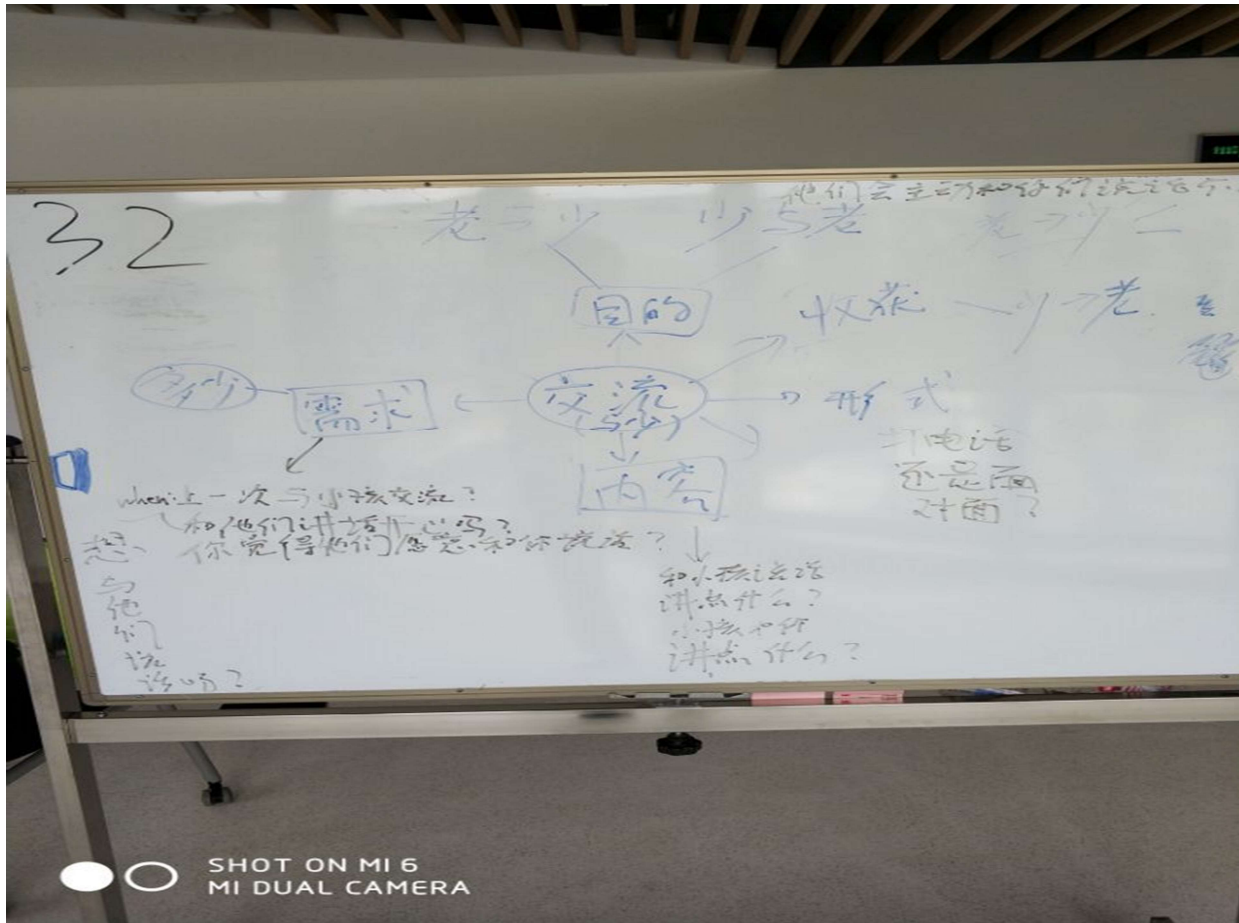 他们会主动和你们说话吗
32
老与少 少与老 老→少
目的
收获 少→老
需求
交流
(与少)
形式
内容
打电话
还是面
对面?
when:上一次与小孩交流?
和他们讲话开心吗?
你觉得他们愿意和你说话?
想
与
他
们
说
话吗?
和小孩说话
讲点什么?
小孩和你
讲点什么?
SHOT ON MI 6
MI DUAL CAMERA